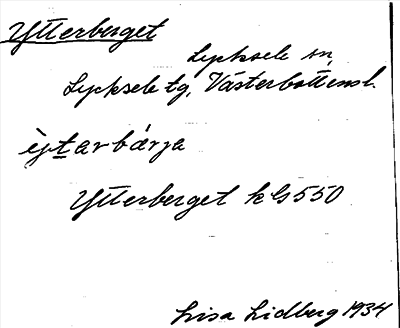 Ytterberget
Lycksele sn,
Lycksele tg, Västerbottensl.
Ytterberget k G 550
Lisa Lidberg 1934